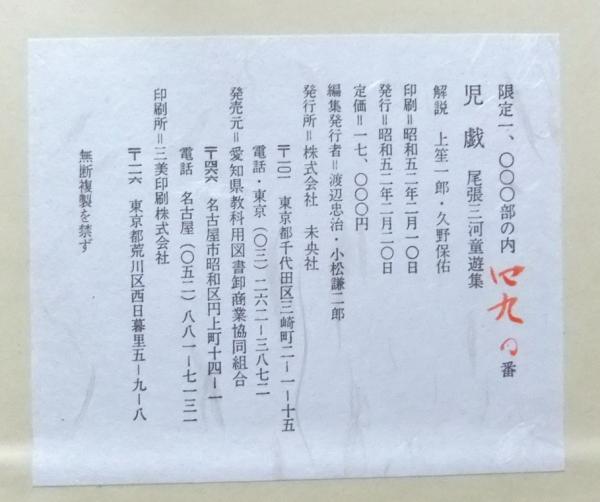 限定一、〇〇〇部の内 四九〇番
児戯 尾張三河童遊集
解説 上笙一郎・久野保佑
印刷＝昭和五二年二月一〇日
発行＝昭和五二年二月二〇日
定価＝一七、〇〇〇円
編集発行者＝渡辺忠治・小松謙二郎
発行所＝株式会社 未央社
〒一〇一 東京都千代田区三崎町二ー一ー十五
電話・東京（〇三）二六二ー三八七二
発売元＝愛知県教科用図書卸商業協同組合
〒四六六 名古屋市昭和区円上町十四ー一
電話 名古屋（〇五二）八八一ー七一三一
印刷所＝三美印刷株式会社
〒一一六 東京都荒川区西日暮里五ー九ー八
無断複製を禁ず